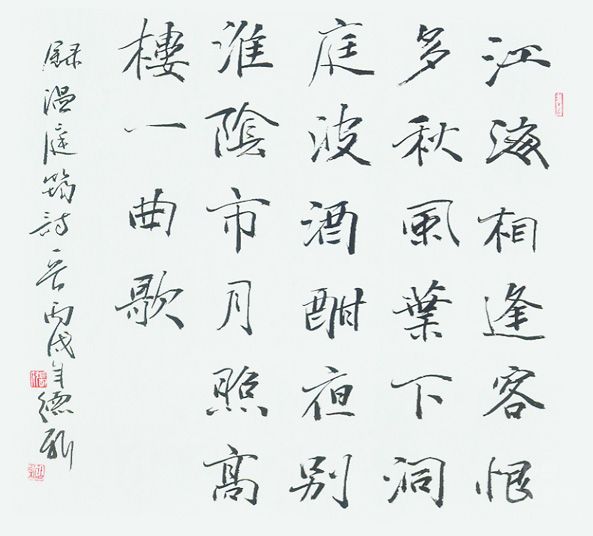 江海相逢客恨
多秋風葉下洞
庭波酒酣夜別
淮陰市月照高
樓一曲歌
録温庭筠詩一首丙戌年德